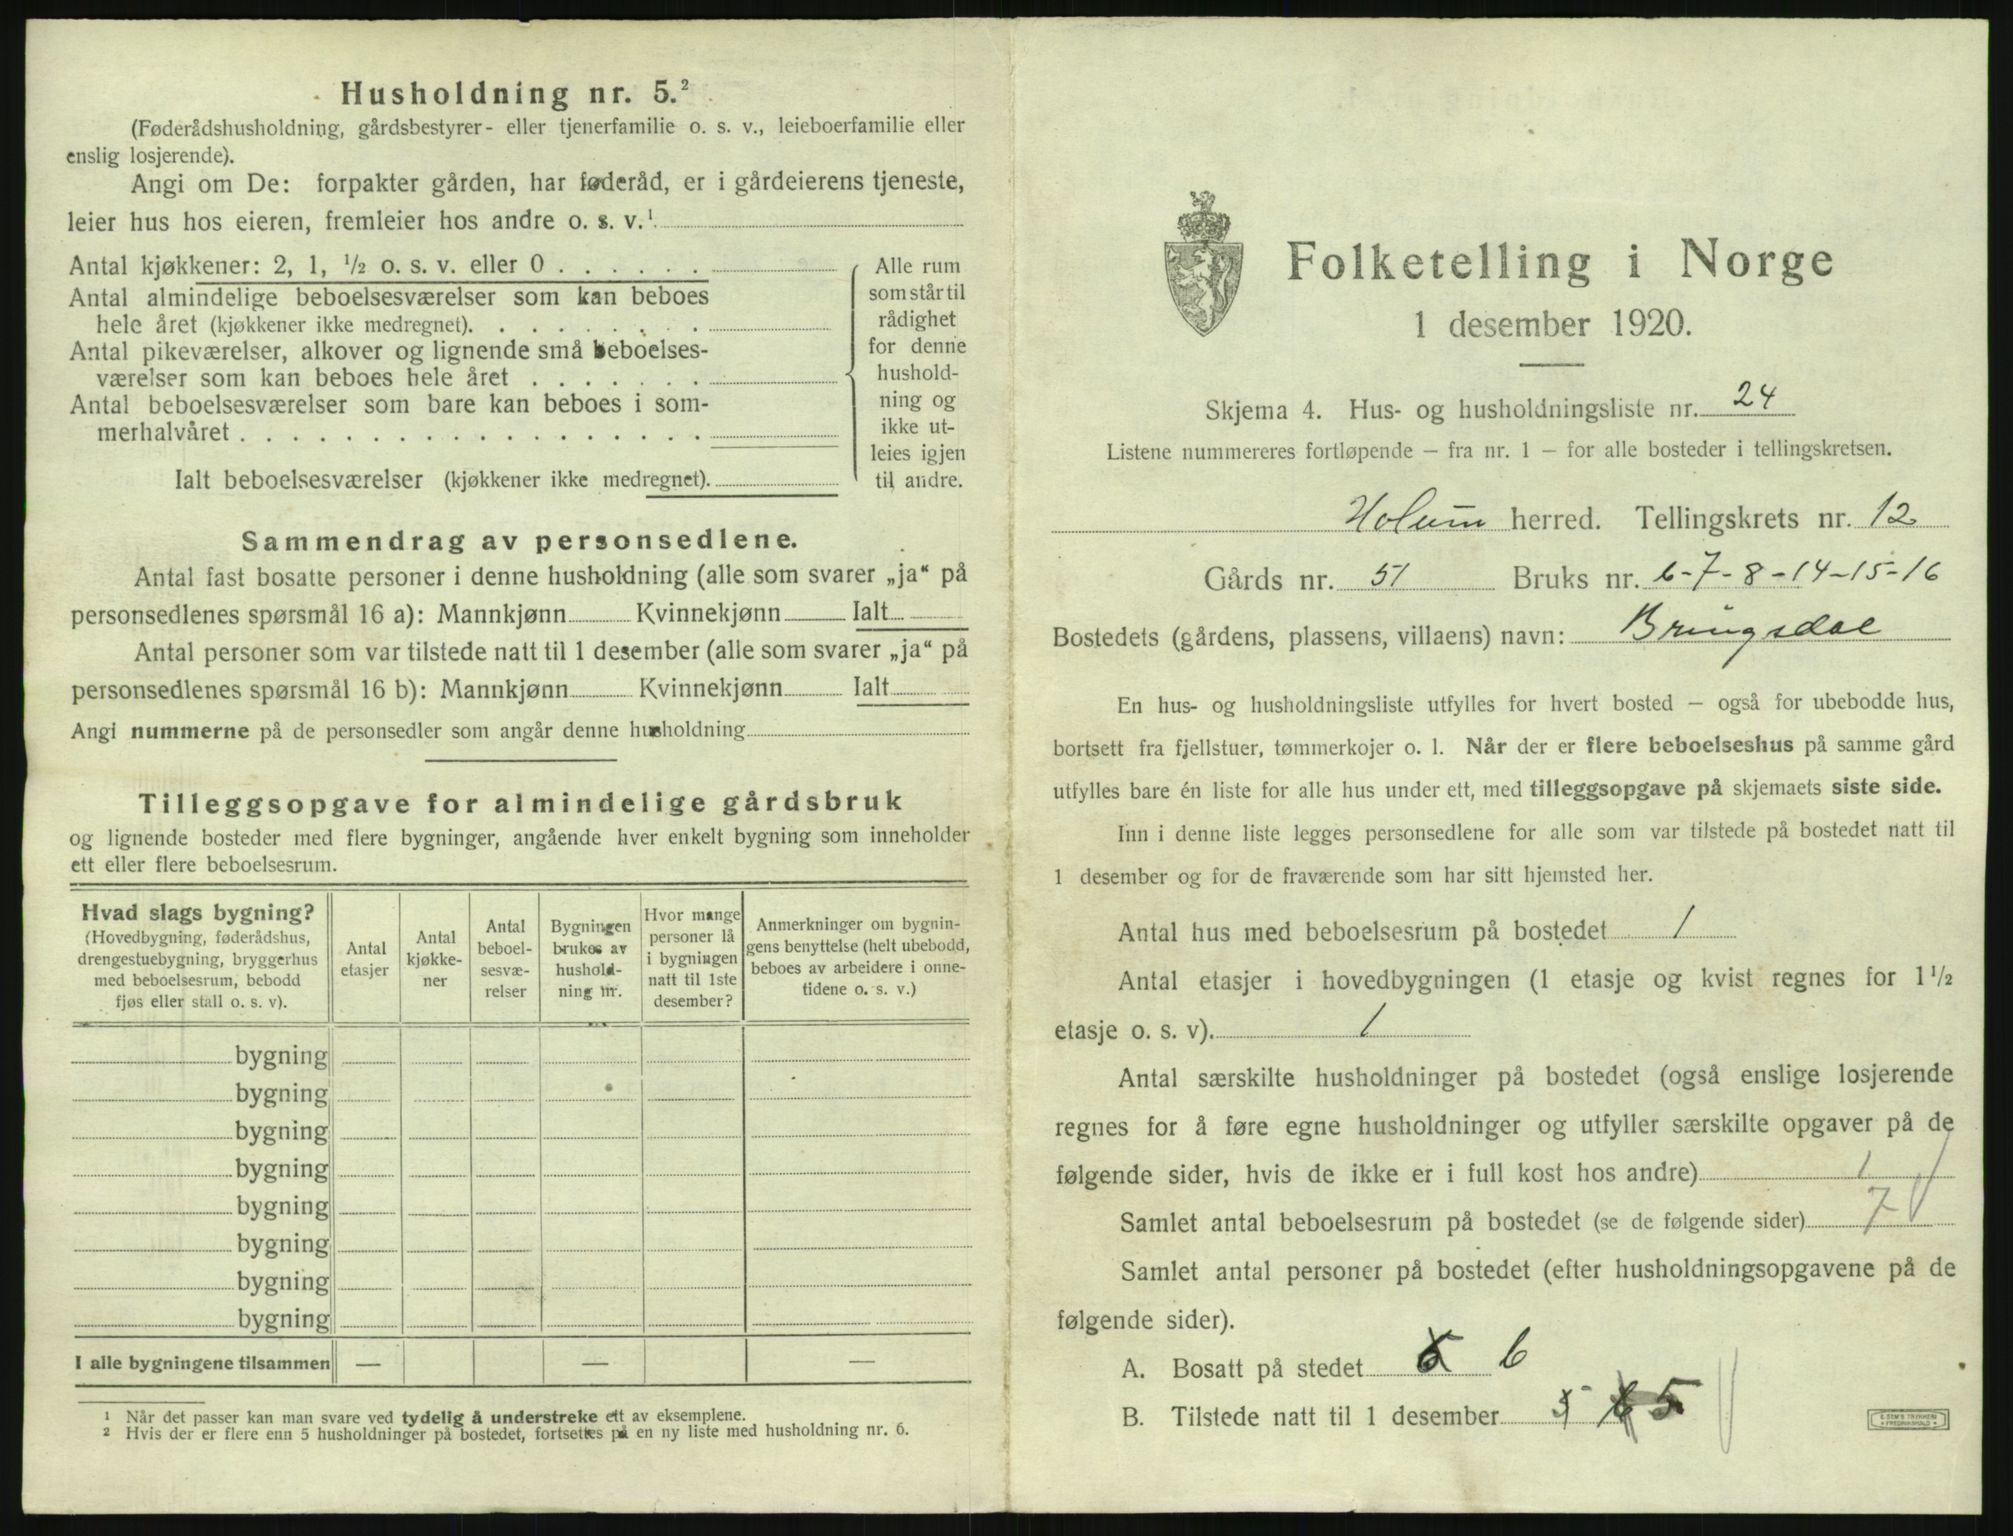 Husholdning nr. 5.²
(Føderådshusholdning, gårdsbestyrer- eller tjenerfamilie o. s. v., leieboerfamilie eller
enslig losjerende).
Angi om De: forpakter gården, har føderåd, er i gårdeierens tjeneste,
leier hus hos eieren, fremleier hos andre o. s. v.¹
Antal kjøkkener: 2, 1, ½ o. s. v. eller 0 . . . . . .
Antal almindelige beboelsesværelser som kan beboes
hele året (kjøkkener ikke medregnet). . . . . . . . .
Antal pikeværelser, alkover og lignende små beboelses-
værelser som kan beboes hele året . . . . . . .
Antal beboelsesværelser som bare kan beboes i som-
merhalvåret . . . . . . . . . . . . . . . . . .
Ialt beboelsesværelser (kjøkkener ikke medregnet).
Alle rum
som står til
rådighet
for denne
hushold-
ning og
ikke ut-
leies igjen
til andre.
Sammendrag av personsedlene.
Antal fast bosatte personer i denne husholdning (alle som svarer „ja“ på
personsedlenes spørsmål 16 a): Mannkjønn Kvinnekjønn Ialt
Antal personer som var tilstede natt til 1 desember (alle som svarer „ja“ på
personsedlenes spørsmål 16 b): Mannkjønn Kvinnekjønn Ialt
Angi nummerne på de personsedler som angår denne husholdning
Tilleggsopgave for almindelige gårdsbruk
og lignende bosteder med flere bygninger, angående hver enkelt bygning som inneholder
ett eller flere beboelsesrum.
Hvad slags bygning?
(Hovedbygning, føderådshus,
drengestuebygning, bryggerhus
med beboelsesrum, bebodd
fjøs eller stall o. s. v).
Antal
etasjer
Antal
kjøkke-
ner
Antal
beboel-
sesvæ-
relser
Bygningen
brukes av
hushold-
ning nr.
Hvor mange
personer lå
i bygningen
natt til 1ste
desember?
Anmerkninger om bygnin-
gens benyttelse (helt ubebodd,
beboes av arbeidere i onne-
tidene o. s. v.)
bygning
bygning
bygning
bygning
bygning
bygning
bygning
bygning
I alle bygningene tilsammen — — —
¹ Når det passer kan man svare ved tydelig å understreke ett av eksemplene.
² Hvis der er flere enn 5 husholdninger på bostedet, fortsettes på en ny liste med husholdning nr. 6.
Folketelling i Norge
1 desember 1920.
Skjema 4. Hus- og husholdningsliste nr. 24
Listene nummereres fortløpende – fra nr. 1 – for alle bosteder i tellingskretsen.
Holum herred. Tellingskrets nr. 12
Gårds nr. 51 Bruks nr. 6-7-8-14-15-16
Bostedets (gårdens, plassens, villaens) navn: Bringsdal
En hus- og husholdningsliste utfylles for hvert bosted – også for ubebodde hus,
bortsett fra fjellstuer, tømmerkojer o. l. Når der er flere beboelseshus på samme gård
utfylles bare én liste for alle hus under ett, med tilleggsopgave på skjemaets siste side.
Inn i denne liste legges personsedlene for alle som var tilstede på bostedet natt til
1 desember og for de fraværende som har sitt hjemsted her.
Antal hus med beboelsesrum på bostedet 1
Antal etasjer i hovedbygningen (1 etasje og kvist regnes for 1½
etasje o. s. v). 1
Antal særskilte husholdninger på bostedet (også enslige losjerende
regnes for å føre egne husholdninger og utfyller særskilte opgaver på de
følgende sider, hvis de ikke er i full kost hos andre) 1
Samlet antal beboelsesrum på bostedet (se de følgende sider) 7
Samlet antal personer på bostedet (efter husholdningsopgavene på de
følgende sider).
A. Bosatt på stedet 6
B. Tilstede natt til 1 desember 5 6 5
E. SEM'S TRYKKERI
FREDRIKSHALD